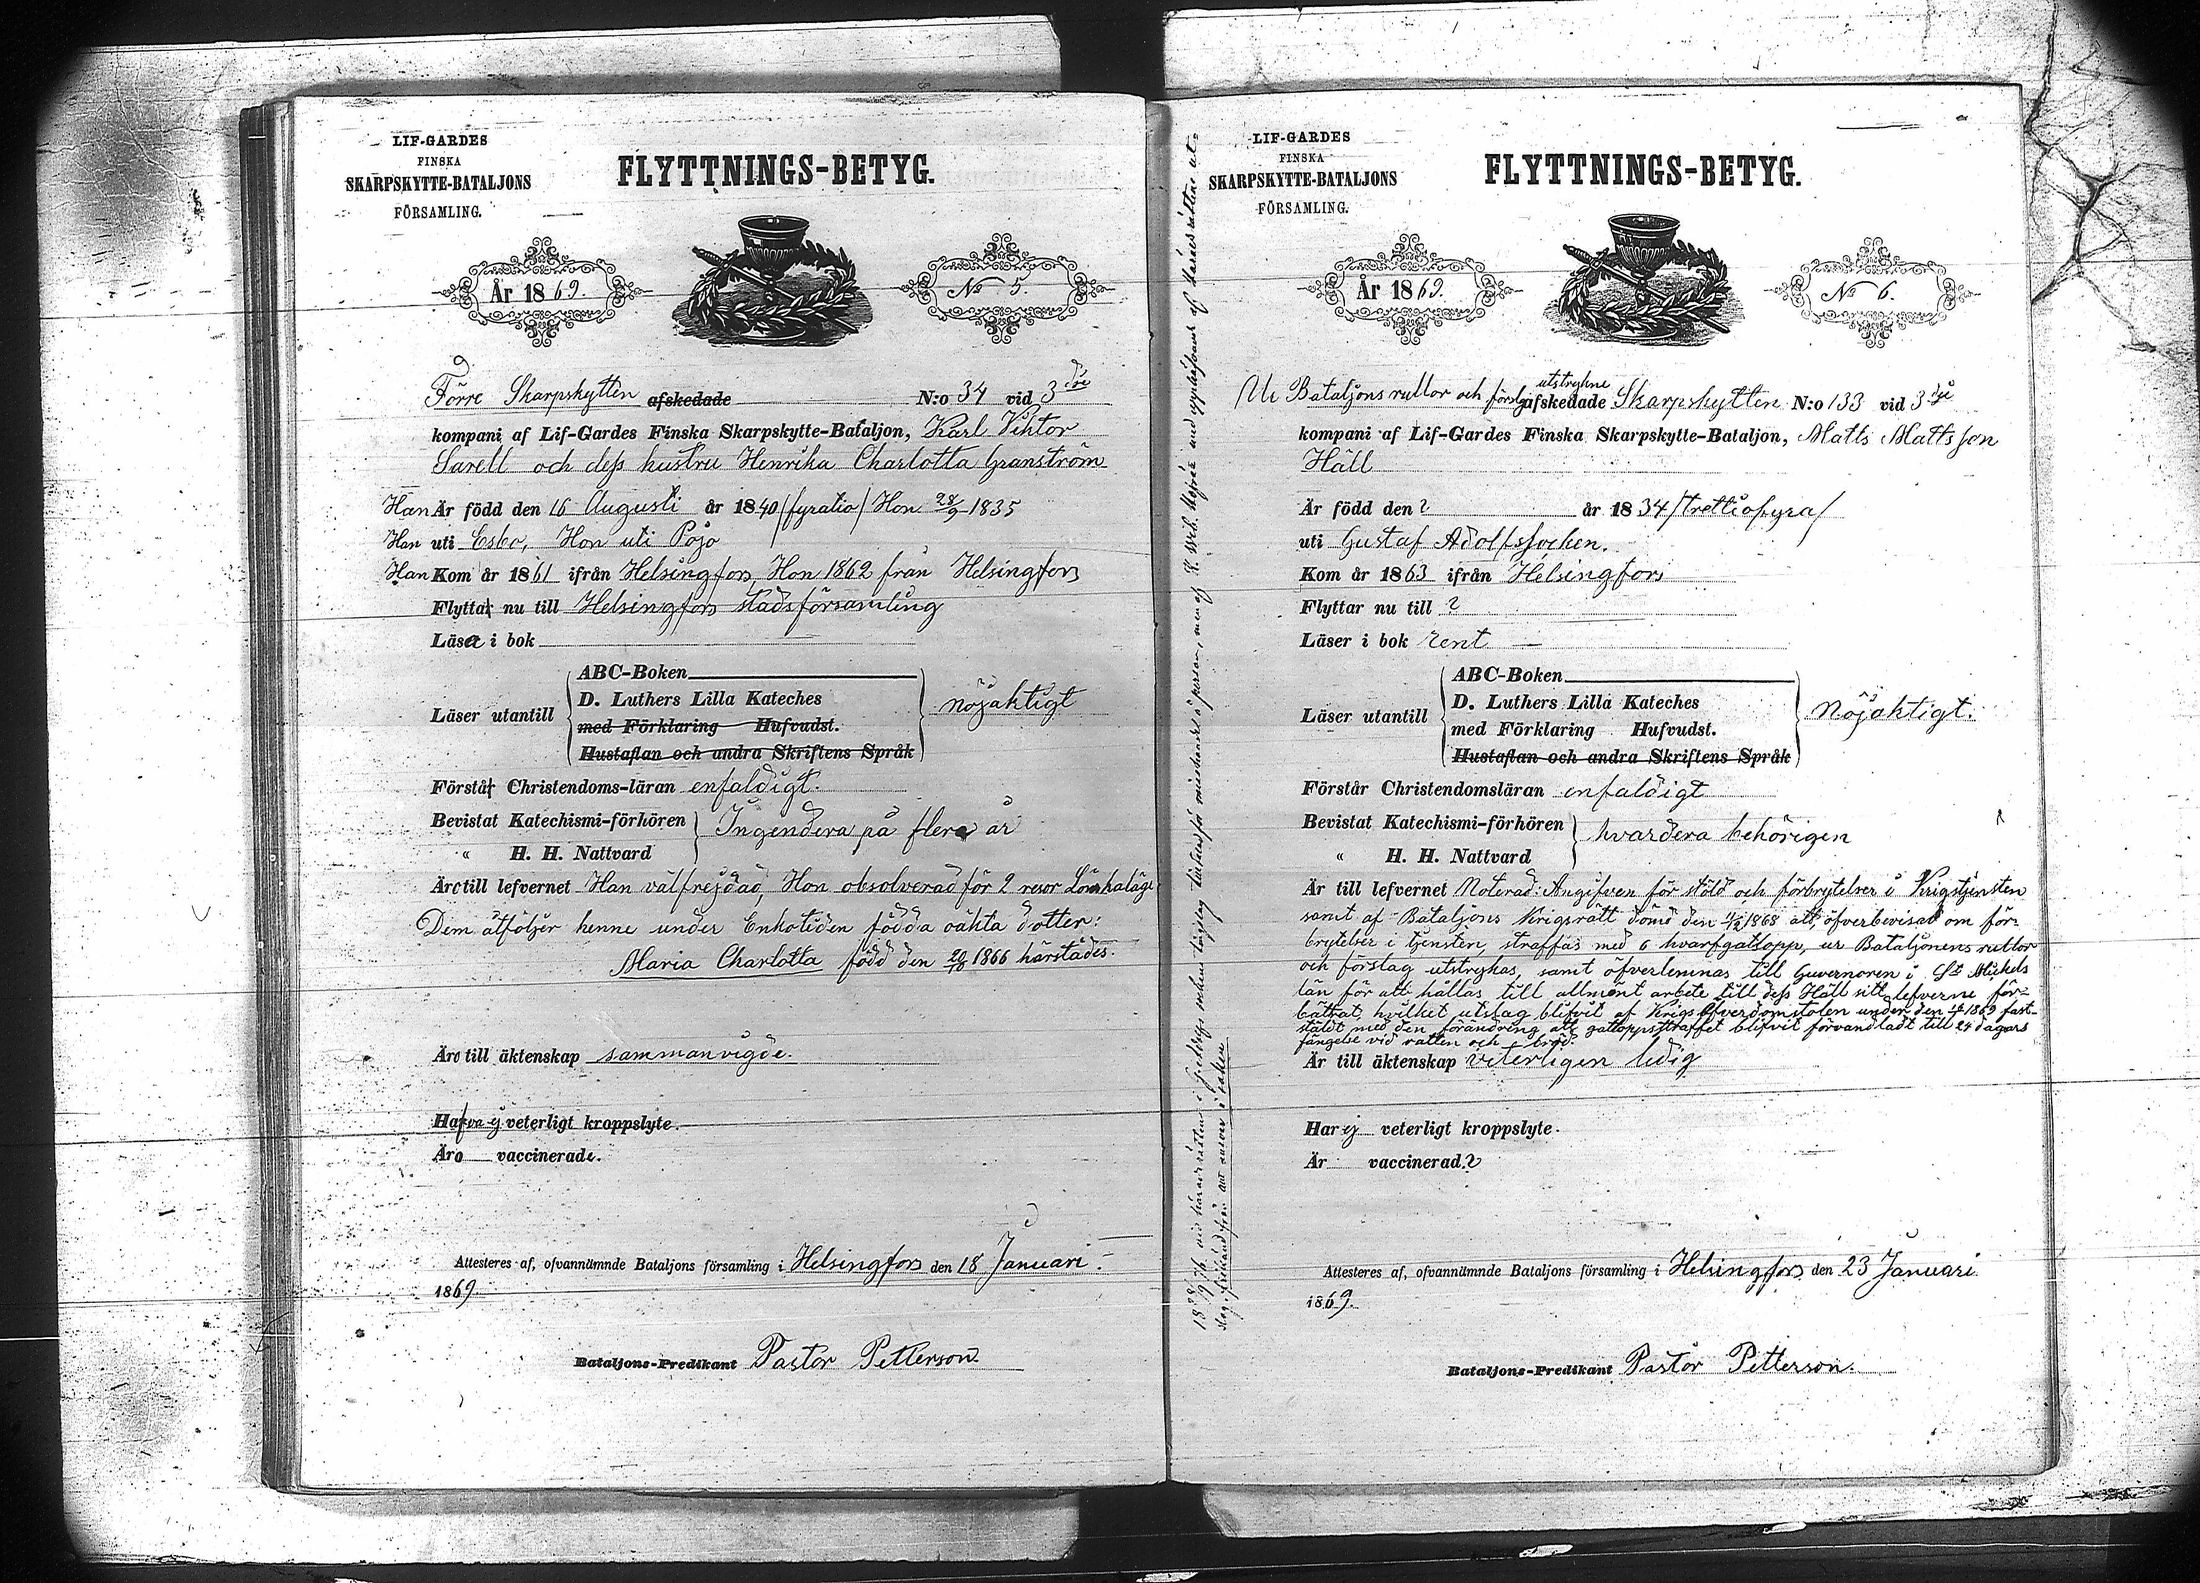 LIF-GARDES
FINSKA
SKARPSKYTTE-BATALJONS
FÖRSAMLING.
FLYTTNINGS-BETYG.
År 1869.
No 5.
Förre Skarpskytten afskedade N:o 34 vid 3dje
kompani af Lif-Gardes Finska Skarpskytte-Bataljon, Karl Viktor
Sarell och dess hustru Henrika Charlotta Granström
Han Är född den 16 Augusti år 1840 /fyratio/ Hon 28/9 1835
Han uti Esbo, Hon uti Pojo
Han Kom år 1861 ifrån Helsingfors, Hon 1862 från Helsingfors
Flytta nu till Helsingfors stadsförsamling
Läsa i bok
Läser utantill
ABC-Boken
D. Luthers Lilla Kateches
med Förklaring Hufvudst.
Hustaflan och andra Skriftens Språk
nöjaktigt
Förstå Christendoms-läran enfaldigt.
Bevistat Katechismi-förhören
" H. H. Nattvard
Ingendera på flera år
Äro till lefvernet Han välfrejdad, Hon absolverad för 2 resor Lönskaläge
Dem åtföljer henne under Enkotiden födda oäkta dotter:
Maria Charlotta född den 20/10 1866 härstädes.
Äro till äktenskap sammanvigde.
Hafva ej veterligt kroppslyte.
Äro vaccinerade.
Attesteres af, ofvannämnde Bataljons församling i Helsingfors den 18 Januari
1869.
Bataljons-Predikant Pastor Petterson.
LIF-GARDES
FINSKA
SKARPSKYTTE-BATALJONS
FÖRSAMLING.
FLYTTNINGS-BETYG.
År 1869.
No 6.
utstrykne
Ur Bataljons rullor och förslag afskedade Skarpskytten N:o 133 vid 3dje
kompani af Lif-Gardes Finska Skarpskytte-Bataljon, Matts Mattsson
Häll
Är född den ? år 1834 /trettiofyra/
uti Gustaf Adolfs socken.
Kom år 1863 ifrån Helsingfors
Flyttar nu till ?
Läser i bok rent
Läser utantill
ABC-Boken
D. Luthers Lilla Kateches
med Förklaring Hufvudst.
Hustaflan och andra Skriftens Språk
Nöjaktigt.
Förstår Christendomsläran enfaldigt
Bevistat Katechismi-förhören
" H. H. Nattvard
hvardera behörigen
Är till lefvernet Noterad: Angifven för stöld och förbrytelser i Krigstjensten
samt af Bataljons Krigsrätt dömd den 1868 att, öfverbevisad om för-
brytelser i tjensten, straffas med 6 hvarf gatlopp, ur Bataljonens rullor
och förslag utstrykas, samt öfverlemnas till Guvernören i St Michels
län för att hållas till allmänt arbete till dess Häll sitt lefverne för-
bättrat, hvilket utslag blifvit af Krigs Öfverdomstolen under den 1869 fast-
stäldt med den förändring att gatloppsstraffet blifvit förvandladt till 24 dagars
fängelse vid vatten och bröd.
Är till äktenskap veterligen ledig
Har ej veterligt kroppslyte.
Är vaccinerad ?
Attesteres af, ofvannämnde Bataljons församling i Helsingfors den 23 Januari
1869.
Bataljons-Predikant Pastor Petterson.